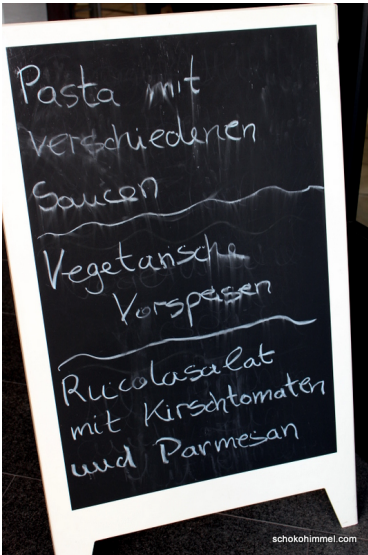 Pasta mit
verschiedenen
Saucen
Vegetarische
Vorspeisen
Rucolasalat
mit Kirschtomaten
und Parmesan
schokohimmel.com